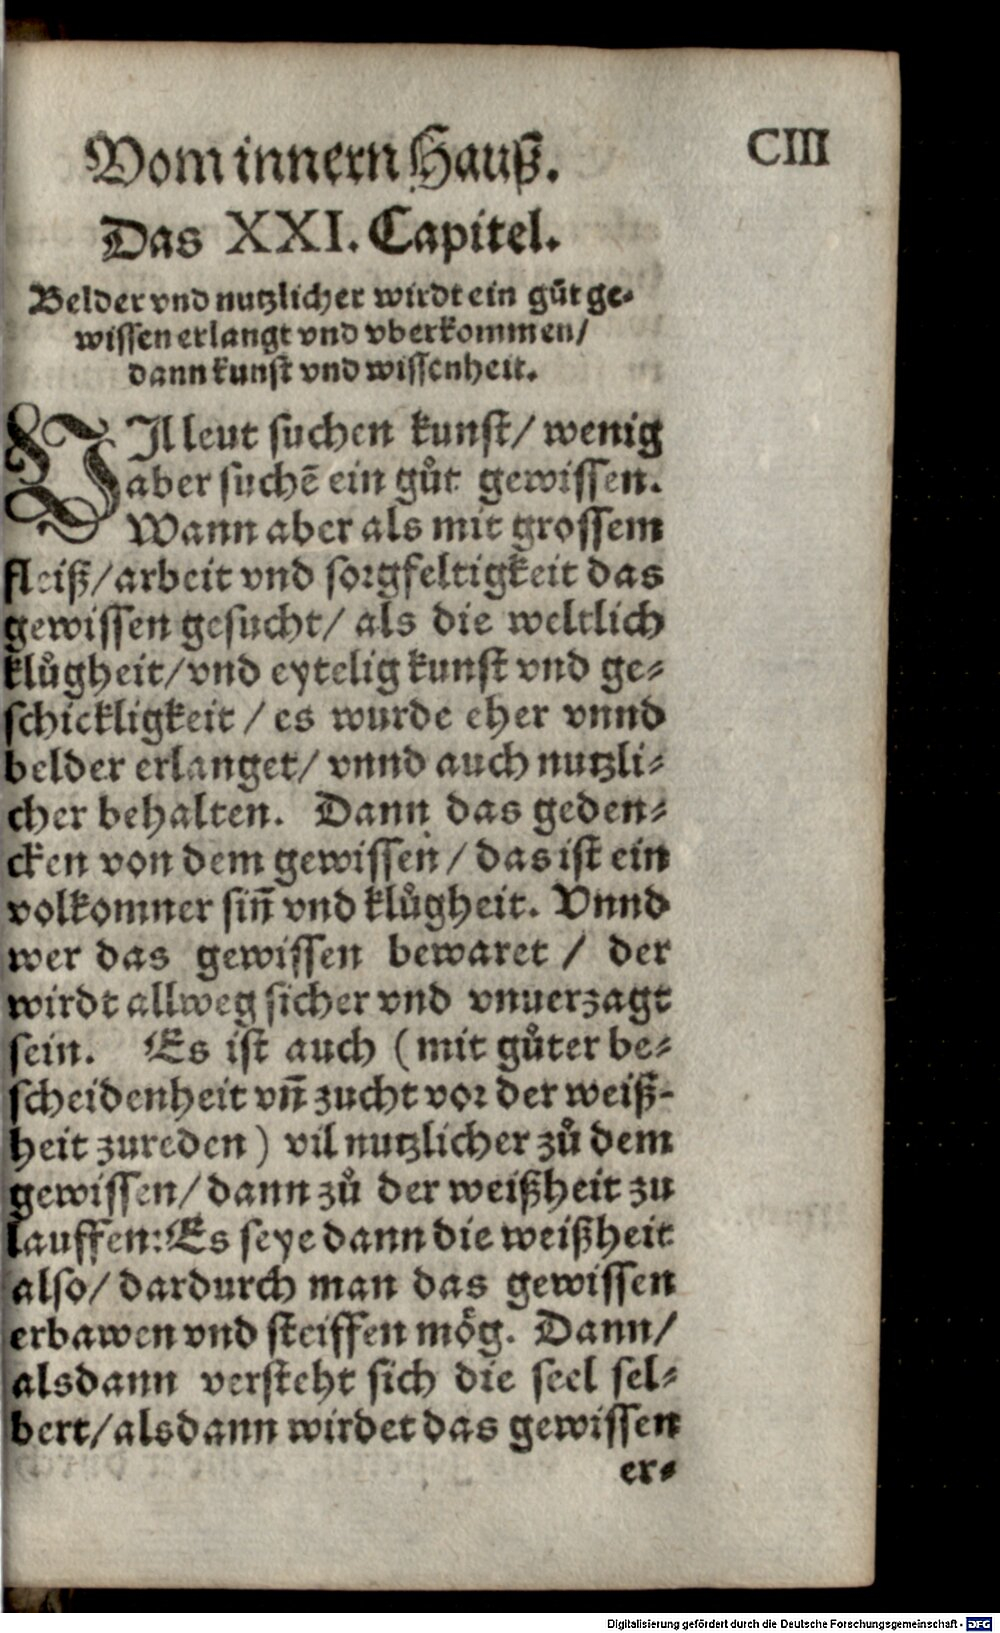 Vom innern Hauß.
CIII
Das XXI. Capitel.
Belder vnd nutzlicher wirdt ein gůt ge-
wissen erlangt vnd vberkommen/
dann kunst vnd wissenheit.
VIl leut suchen kunst/ wenig
aber suchē ein gůt gewissen.
Wann aber als mit grossem
fleiß/ arbeit vnd sorgfeltigkeit das
gewissen gesucht/ als die weltlich
klůgheit/ vnd eytelig kunst vnd ge-
schickligkeit / es wurde eher vnnd
belder erlanget/ vnnd auch nutzli-
cher behalten. Dann das geden-
cken von dem gewissen / das ist ein
volkomner sin̄ vnd klůgheit. Vnnd
wer das gewissen bewaret / der
wirdt allweg sicher vnd vnuerzagt
sein. Es ist auch (mit gůter be-
scheidenheit vn̄ zucht vor der weiß-
heit zureden) vil nutzlicher zů dem
gewissen/ dann zů der weißheit zu
lauffen: Es seye dann die weißheit
also/ dardurch man das gewissen
erbawen vnd steiffen mög. Dann/
alsdann versteht sich die seel sel-
bert/ alsdann wirdet das gewissen
er-
Digitalisierung gefördert durch die Deutsche Forschungsgemeinschaft - DFG